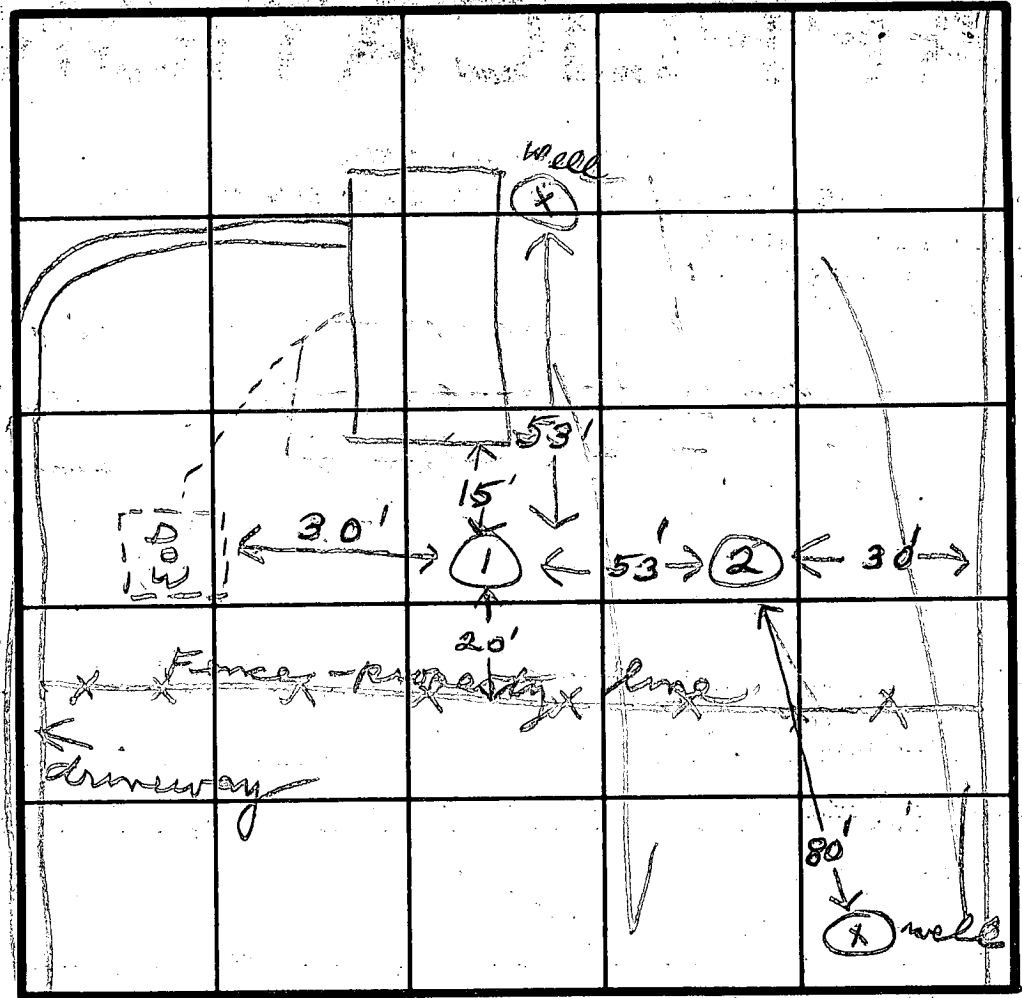 well
X
53'
15'
30'
1
53'
2
30'
20'
Fence - property line
driveway
80'
X well